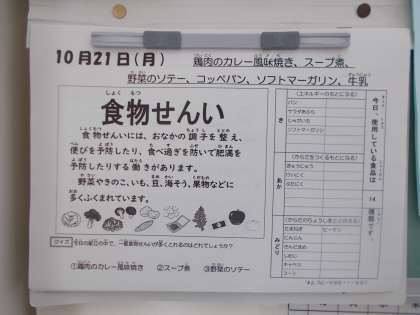 10月21日(月)
鶏肉のカレー風味焼き、スープ煮、
野菜のソテー、コッペパン、ソフトマーガリン、牛乳
食物せんい
食物せんいには、おなかの調子を整え、
便びを予防したり、食べ過ぎを防いで肥満を
予防したりする働きがあります。
野菜やきのこ、いも、豆、海そう、果物などに
多くふくまれています。
クイズ
今日の献立の中で、一番食物せんいが多くとれるのはどれでしょうか?
①鶏肉のカレー風味焼き ②スープ煮 ③野菜のソテー
今日、使用している食品は
14
種類です。
き
(エネルギーのもとになる)
パン
サラダあぶら
じゃがいも
ソフトマーガリン
あか
(からだをつくるもとになる)
ぎゅうにゅう
とりにく
みどり
(からだのちょうしをととのえる)
たまねぎ ピーマン
にんじん
しめじ
キャベツ
コーン